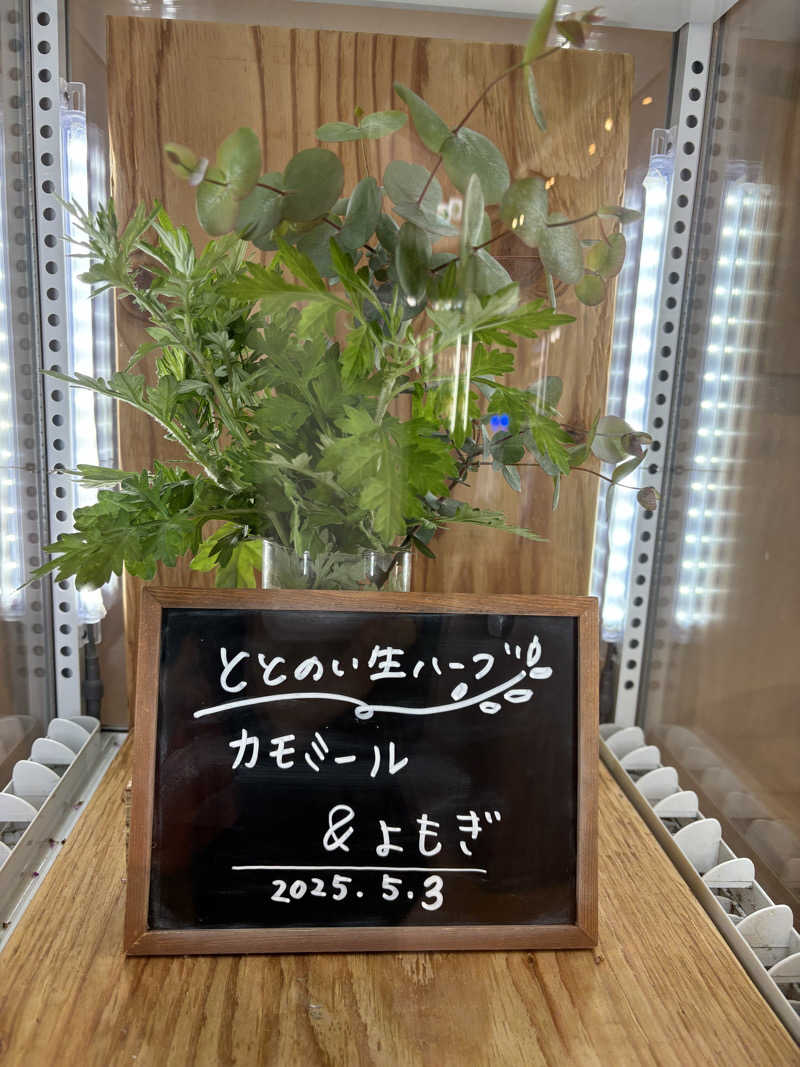 ととのい生ハーブ
カモミール
&よもぎ
2025.5.3